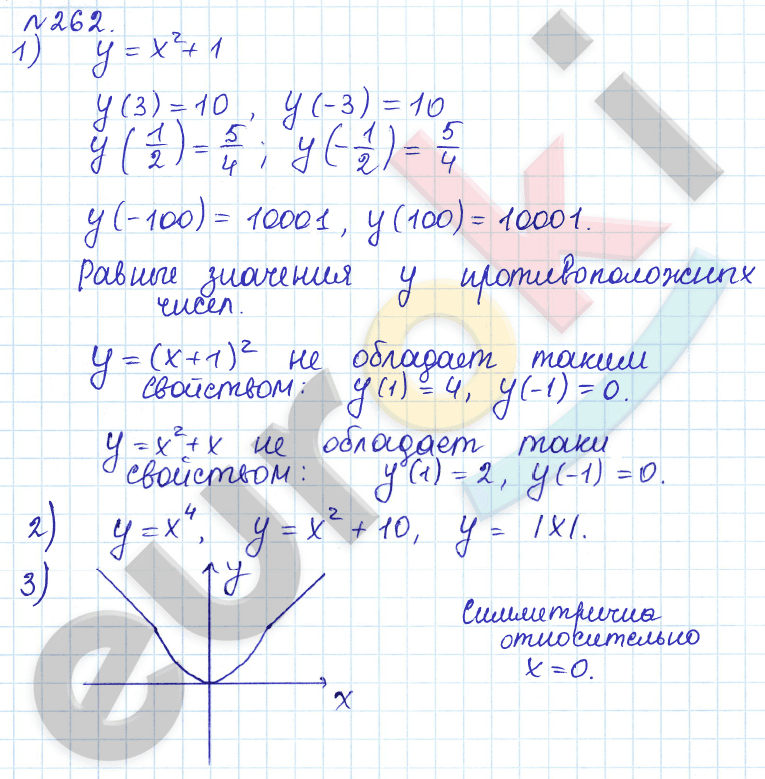 №262.
1) y = x² + 1
y(3) = 10, y(-3) = 10
y(1/2) = 5/4; y(-1/2) = 5/4
y(-100) = 10001, y(100) = 10001.
Равные значения у противоположных
чисел.
y = (x+1)² не обладает таким
свойством: y(1) = 4, y(-1) = 0.
y = x² + x не обладает таки
свойством: y(1) = 2, y(-1) = 0.
2) y = x⁴, y = x² + 10, y = |x|.
3) y
Симметрична
относительно
x = 0.
x
euroki